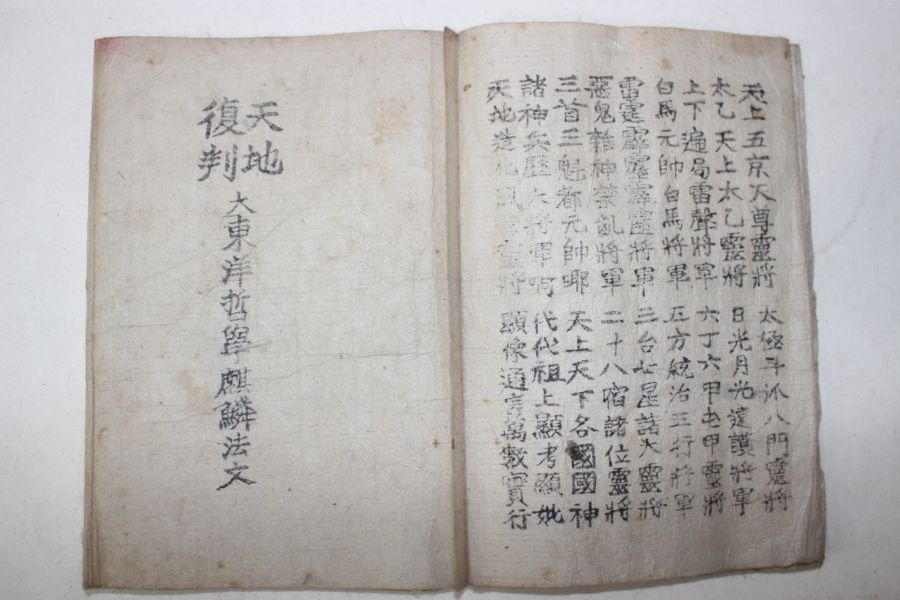 天上五京天尊靈將 太極斗氷八門靈將
太乙天上太乙靈將 日光月光遠護將軍
上下遍局雷聲將軍 六丁六甲屯甲靈將
白馬元帥白馬將軍 五方統治五行將軍
雷霆霹靂霹靂將軍 三台七星諸大靈將
惡鬼雜神禁亂將軍 二十八宿諸位靈將
三首三魁都元帥哪 天上天下各國國神
諸神兵歷大將軍啊 代代祖上顯考顯妣
天地造化風雲靈將 顯像通靈萬數實行
天地
復判
大東洋哲學麒麟法文